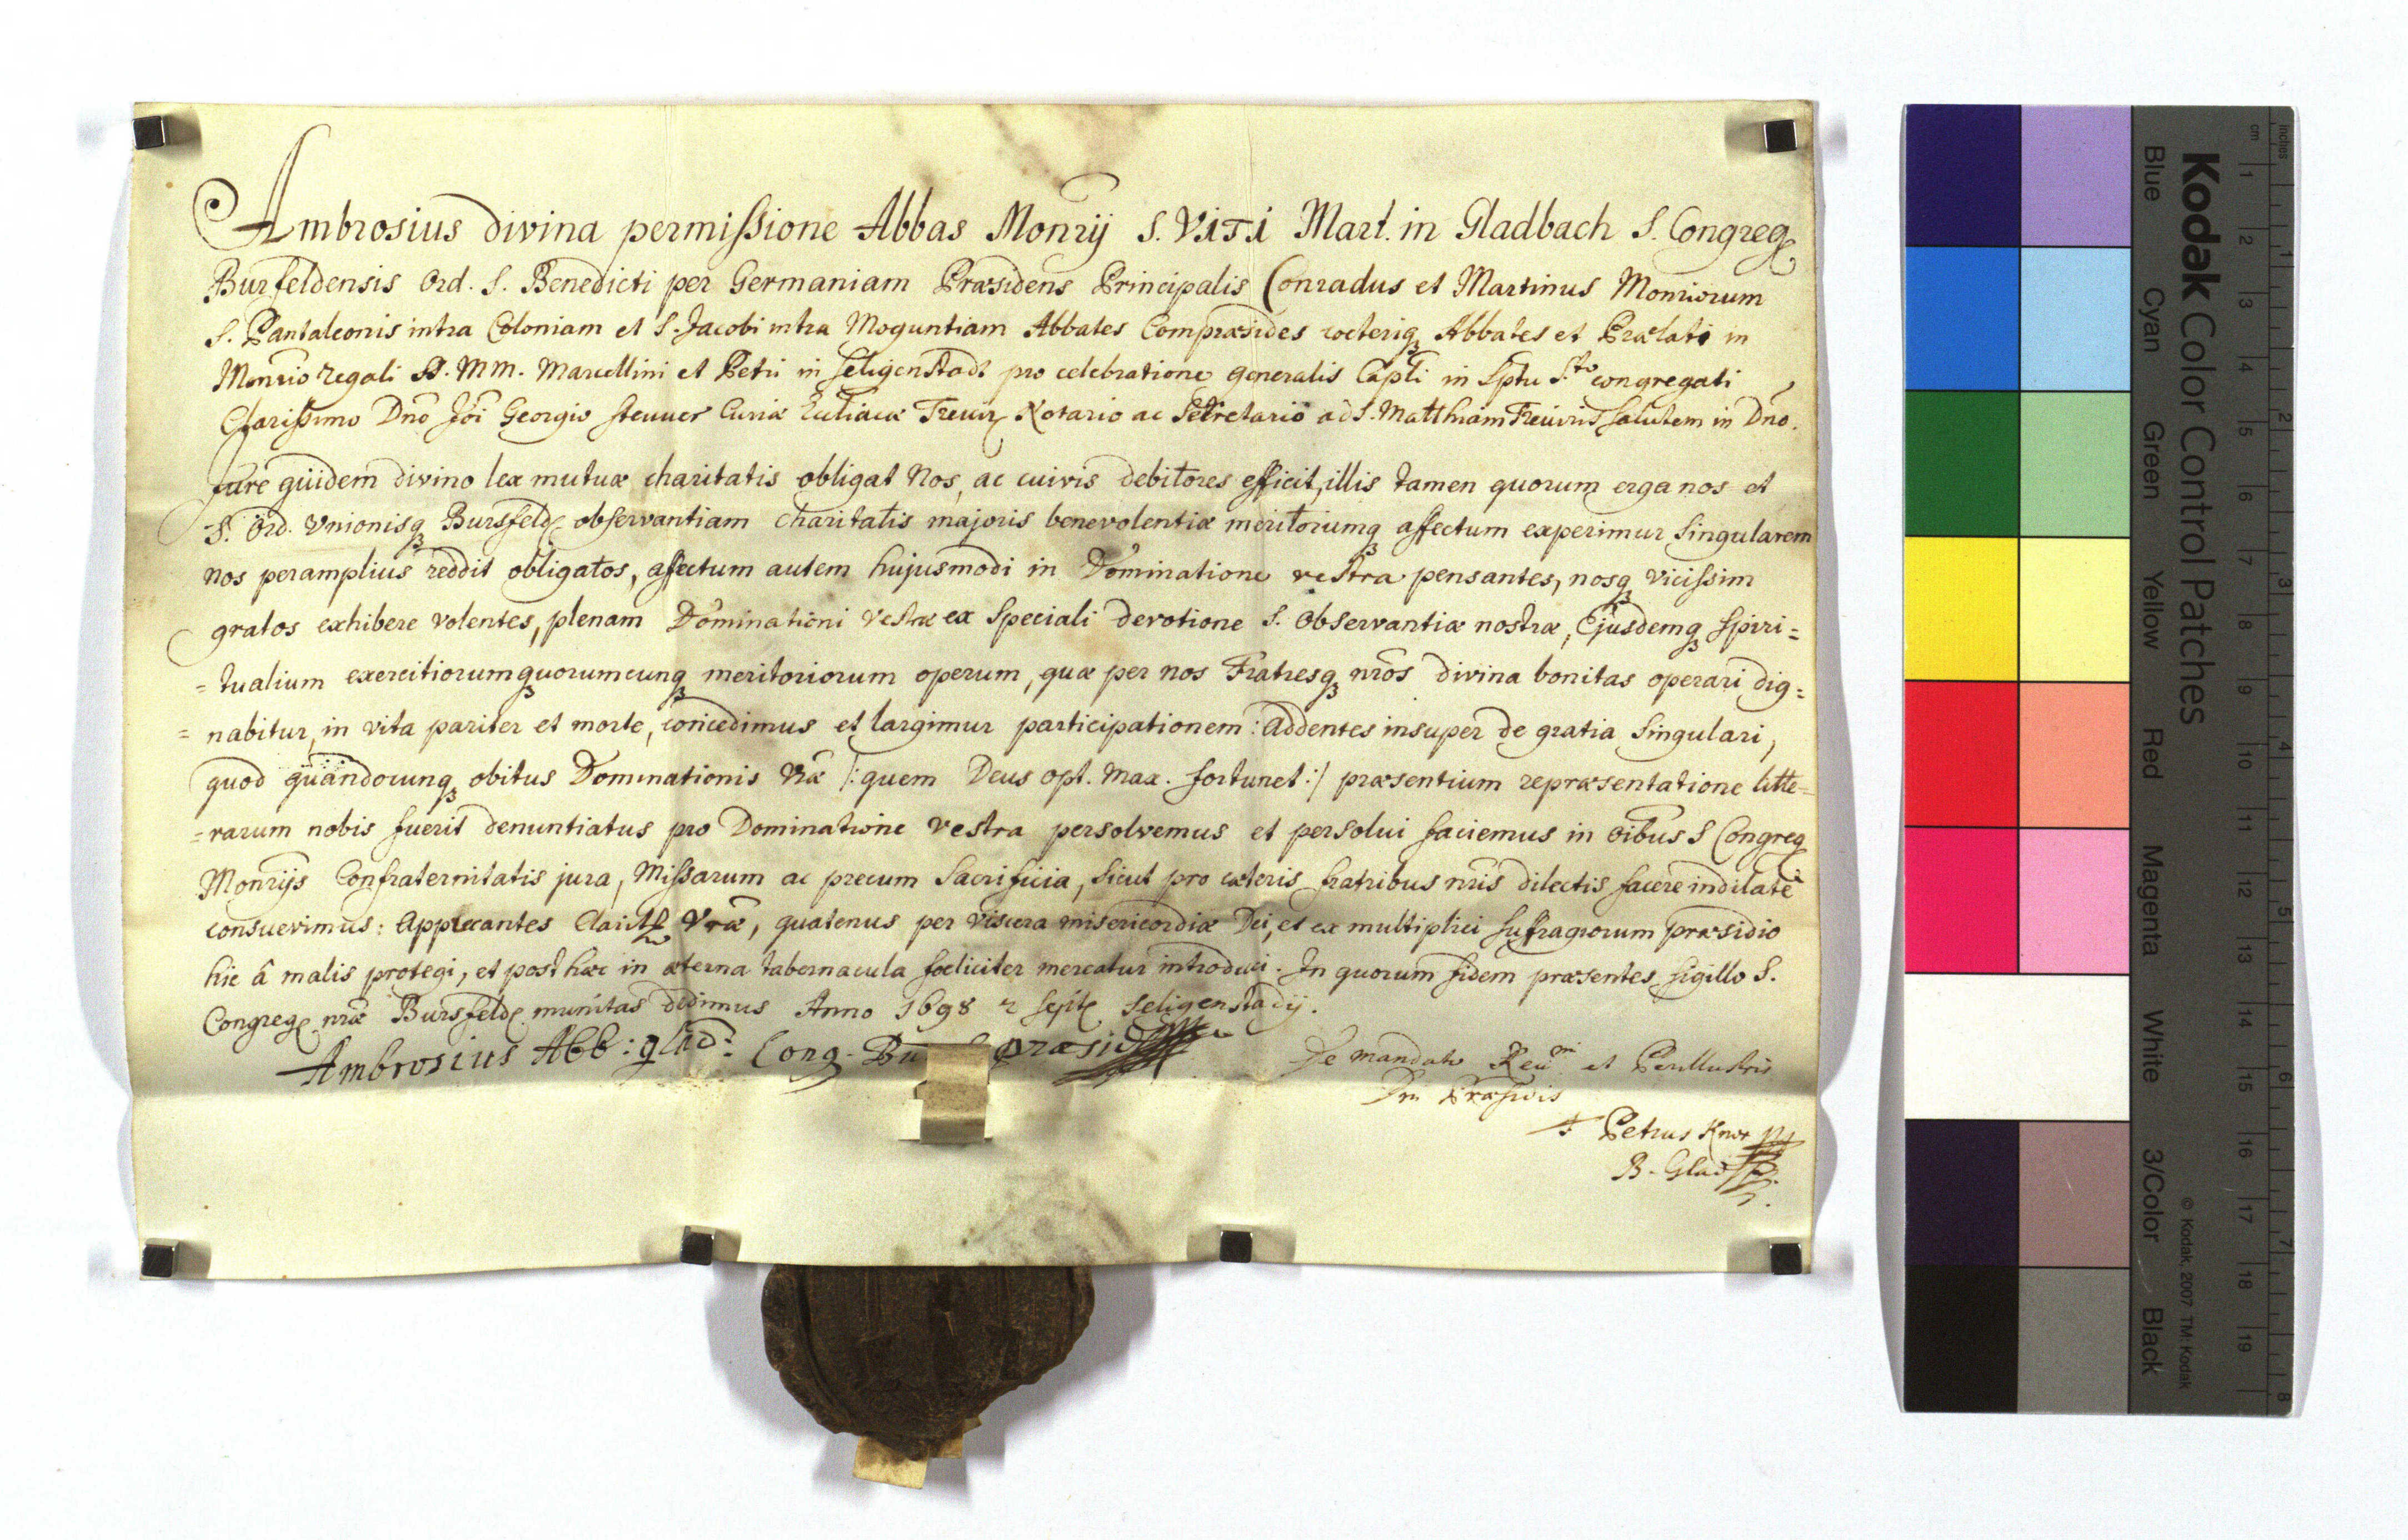 Ambrosius divina permissione Abbas Monrij S. VITI Mart. in Gladbach S. Congreg
Bursfeldensis Ord. S. Benedicti per Germaniam Præsidens Principalis Conradus et Martinus Monriorum
S. Pantaleonis intra Coloniam et S. Jacobi intra Moguntiam Abbates Compræsides cæteriq Abbates et Prælati in
Monrio regali SS. MM. Marcellini et Petri in Seligenstadt pro celebratione generalis Capli in Sptu S.to congregati
Clarissimo Dno Joi Georgio Steuuer Curiæ Trevir Notario ac Secretario ad S. Matthiam Treviris Salutem in Dno.
Jure quidem divino lex mutuæ charitatis obligat Nos, ac cuivis debitores efficit, illis tamen quorum erga nos et
S. Ord. Vnionisq Bursfeld observantiam charitatis majoris benevolentiæ meritoriumq affectum experimur singularem
nos peramplius reddit obligatos, affectum autem hujusmodi in Dominatione vestra pensantes, nosq vicissim
gratos exhibere volentes, plenam Dominationi Vestræ ex speciali devotione S. Observantiæ nostræ, Ejusdemq spiri=
=tualium exercitiorumq quorumcunq meritoriorum operum, quæ per nos Fratresq nros divina bonitas operari dig=
=nabitur, in vita pariter et morte, concedimus et largimur participationem: addentes insuper de gratia singulari,
quod quandocunq obitus Dominationis Vræ /:quem Deus opt. max. fortunet:/ præsentium repræsentatione litte=
=rarum nobis fuerit denuntiatus pro Dominatione Vestra persolvemus et persolui faciemus in oibus S Congreg
Monrijs Confraternitatis jura, Missarum ac precum Sacrificia, sicut pro cæteris fratribus nris dilectis facere indilatè
consuevimus: Apprecantes Vræ, quatenus per viscera misericordiæ Dei, et ex multiplici sufragiorum præsidio
hic â malis protegi, et post hæc in æterna tabernacula fæliciter mereatur introduci. In quorum fidem præsentes sigillo S.
Congreg nræ Bursfeld munitas dedimus Anno 1698 2 Septe Seligenstadij.
Ambrosius Abb: glad: Cong. Bu præsid
De mandato Reu.mi et Perillustris
Dni Præsidis
F. Petrus Knor
B. Glad
Kodak Color Control Patches
Blue Cyan Green Yellow Red Magenta White 3/Color Black
© Kodak, 2007 TM: Kodak
inches 1 2 3 4 5 6 7 8
cm 1 2 3 4 5 6 7 8 9 10 11 12 13 14 15 16 17 18 19